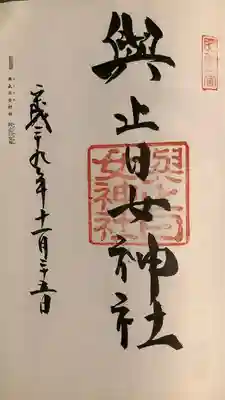 與止日女神社
與止日女神社
平成二九年十一月二五日